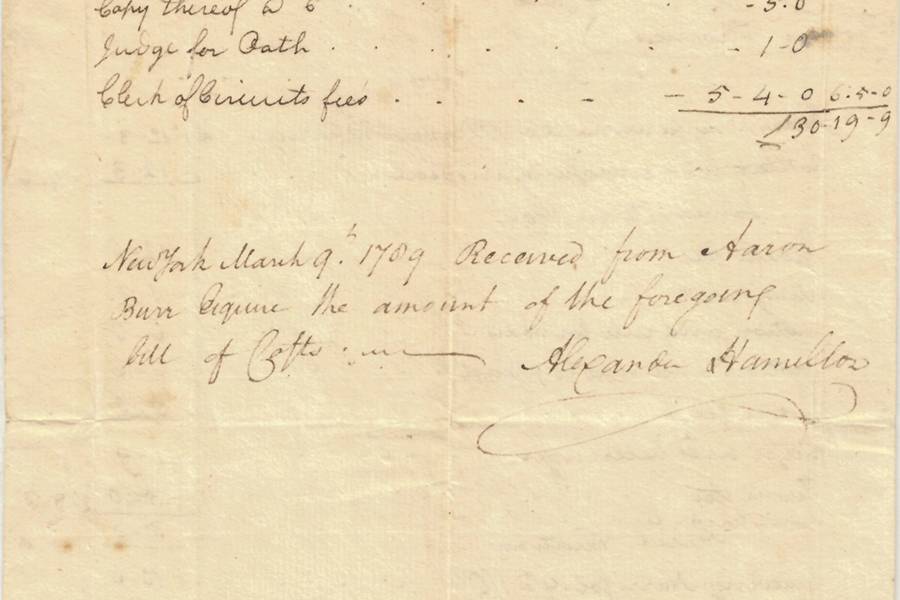 Copy thereof - 5. 0
Judge for Oath - 1 - 0
Clerk of Circuits fees - 5 - 4 - 0 6. 5 - 0
£30-19-9
New York March 9.th 1789 Received from Aaron
Burr Esquire the amount of the foregoing
bill of Costs
Alexander Hamilton